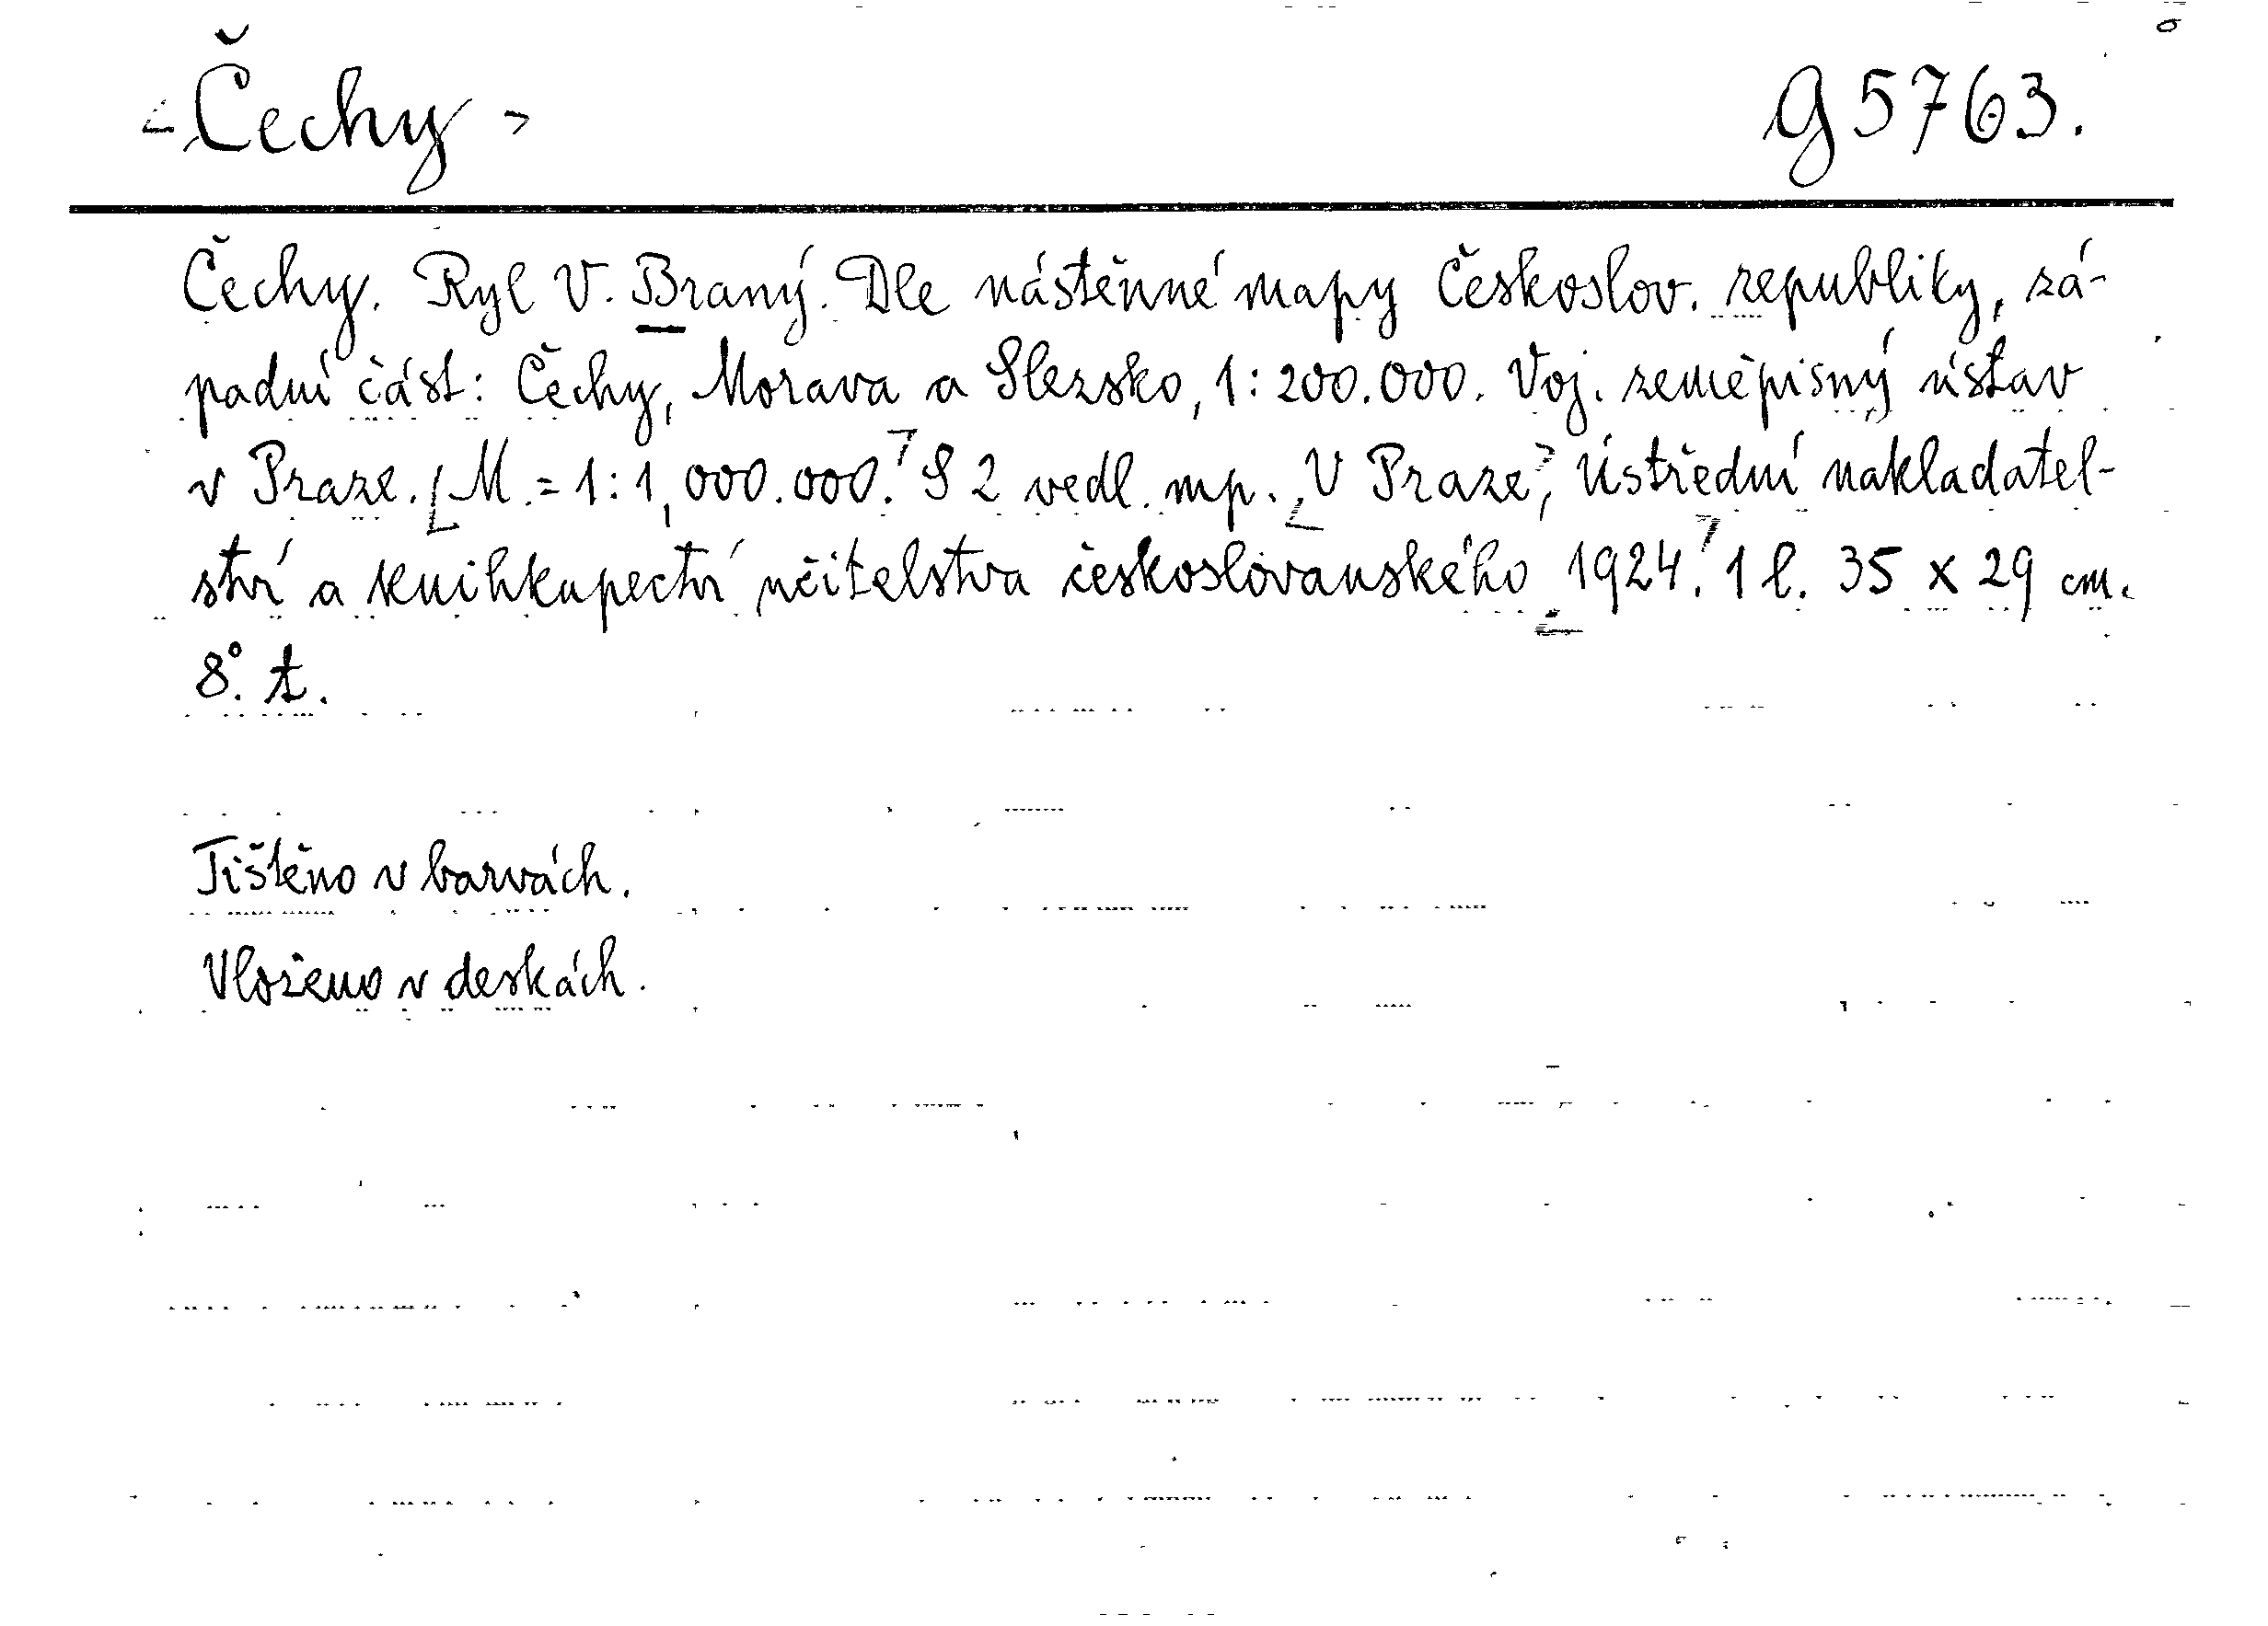 <Čechy> g 5763.
Čechy. Ryl V. Braný. Dle nástěnné mapy Českoslov. republiky, zá-
padní část: Čechy, Morava a Slezsko, 1:200.000. Voj. zeměpisný ústav
v Praze. [M. = 1:1,000.000.] S 2 vedl. mp. [V Praze], Ústřední nakladatel-
ství a knihkupectví učitelstva českoslovanského [1924.] 1 l. 35 x 29 cm.
8°. t.
Tištěno v barvách.
Vloženo v deskách.